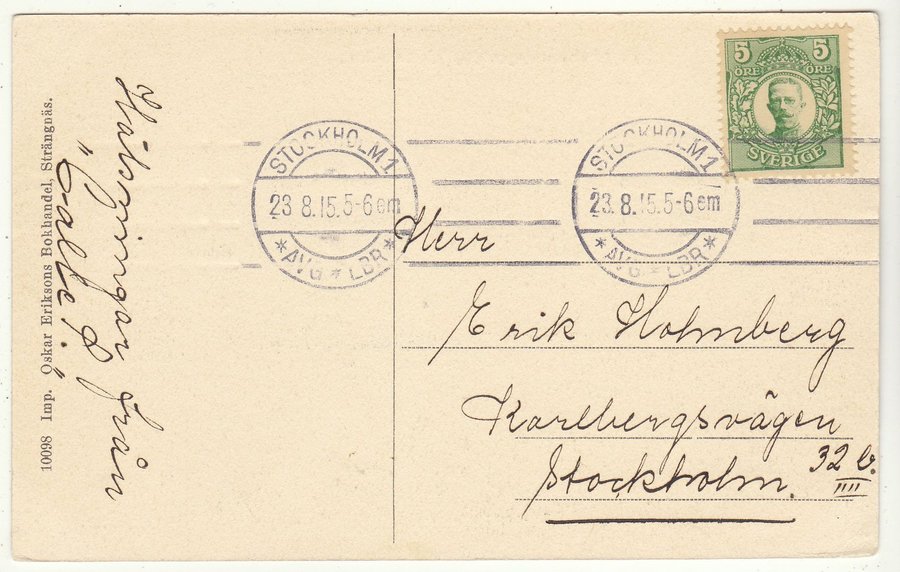 10098 Imp. Oskar Eriksons Bokhandel, Strängnäs.
Hälsningar från
"Calle P."
STOCKHOLM 1
23.8.15.5-6em
* AVG * LBR *
STOCKHOLM 1
23.8.15.5-6em
* AVG * LBR *
5 5
ÖRE ÖRE
SVERIGE
Herr
Erik Holmberg
Karlbergsvägen
32 b.
IIII
Stockholm.